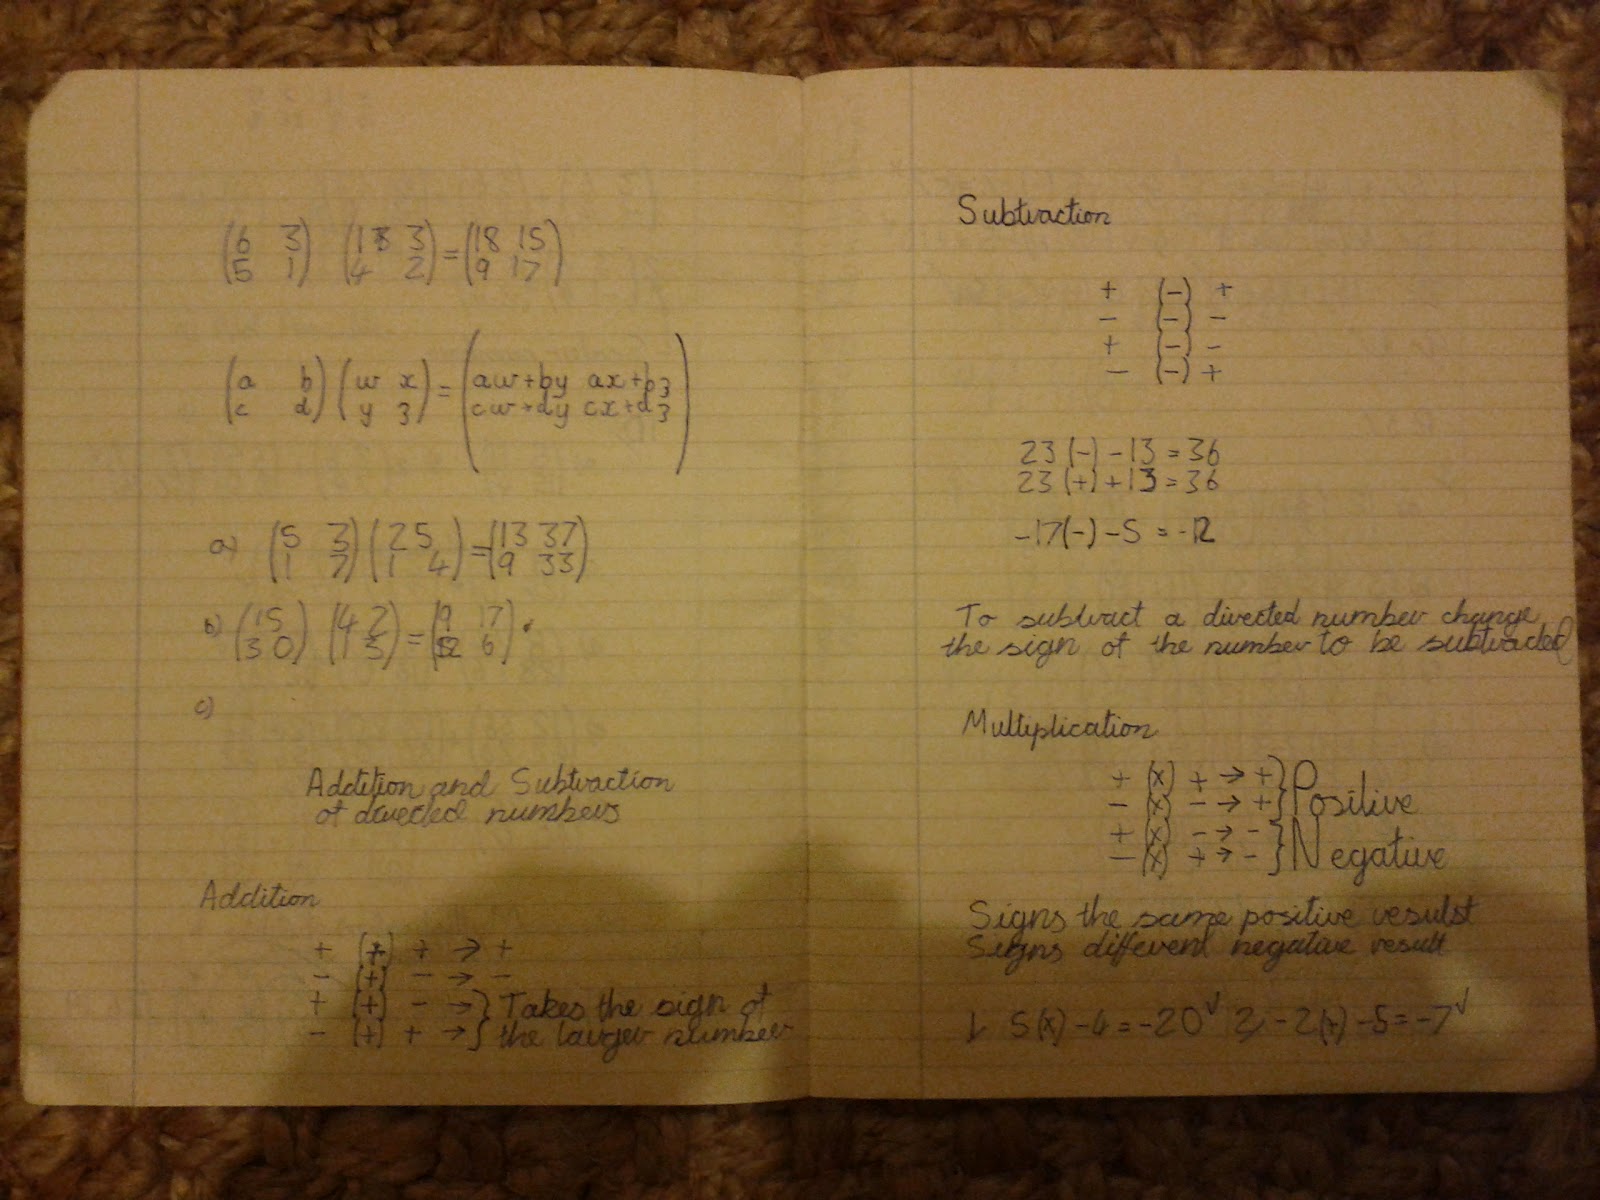 (6 3) (1 3) = (18 15)
(5 1) (4 2) (9 17)
(a b) (w x) = (aw+by ax+bz)
(c d) (y z) (cw+dy cx+dz)
a) (5 3) (2 5) = (13 37)
(1 7) (1 4) (9 33)
b) (1 5) (4 2) = (9 17)
(3 0) (1 3) (12 6)
c)
Addition and Subtraction
of directed numbers
Addition
+ (+) + → +
- (+) - → -
+ (+) - → } Takes the sign of
- (+) + → } the larger number
Subtraction
+ (-) +
- (-) -
+ (-) -
- (-) +
23 (-) -13 = 36
23 (+) +13 = 36
-17 (-) -5 = -12
To subtract a directed number change
the sign of the number to be subtracted
Multiplication
+ (x) + → + } Positive
- (x) - → + }
+ (x) - → - } Negative
- (x) + → - }
Signs the same positive resulst
Signs different negative result
1, 5 (x) -4 = -20 ✓ 2, -2 (+) -5 = -7 ✓